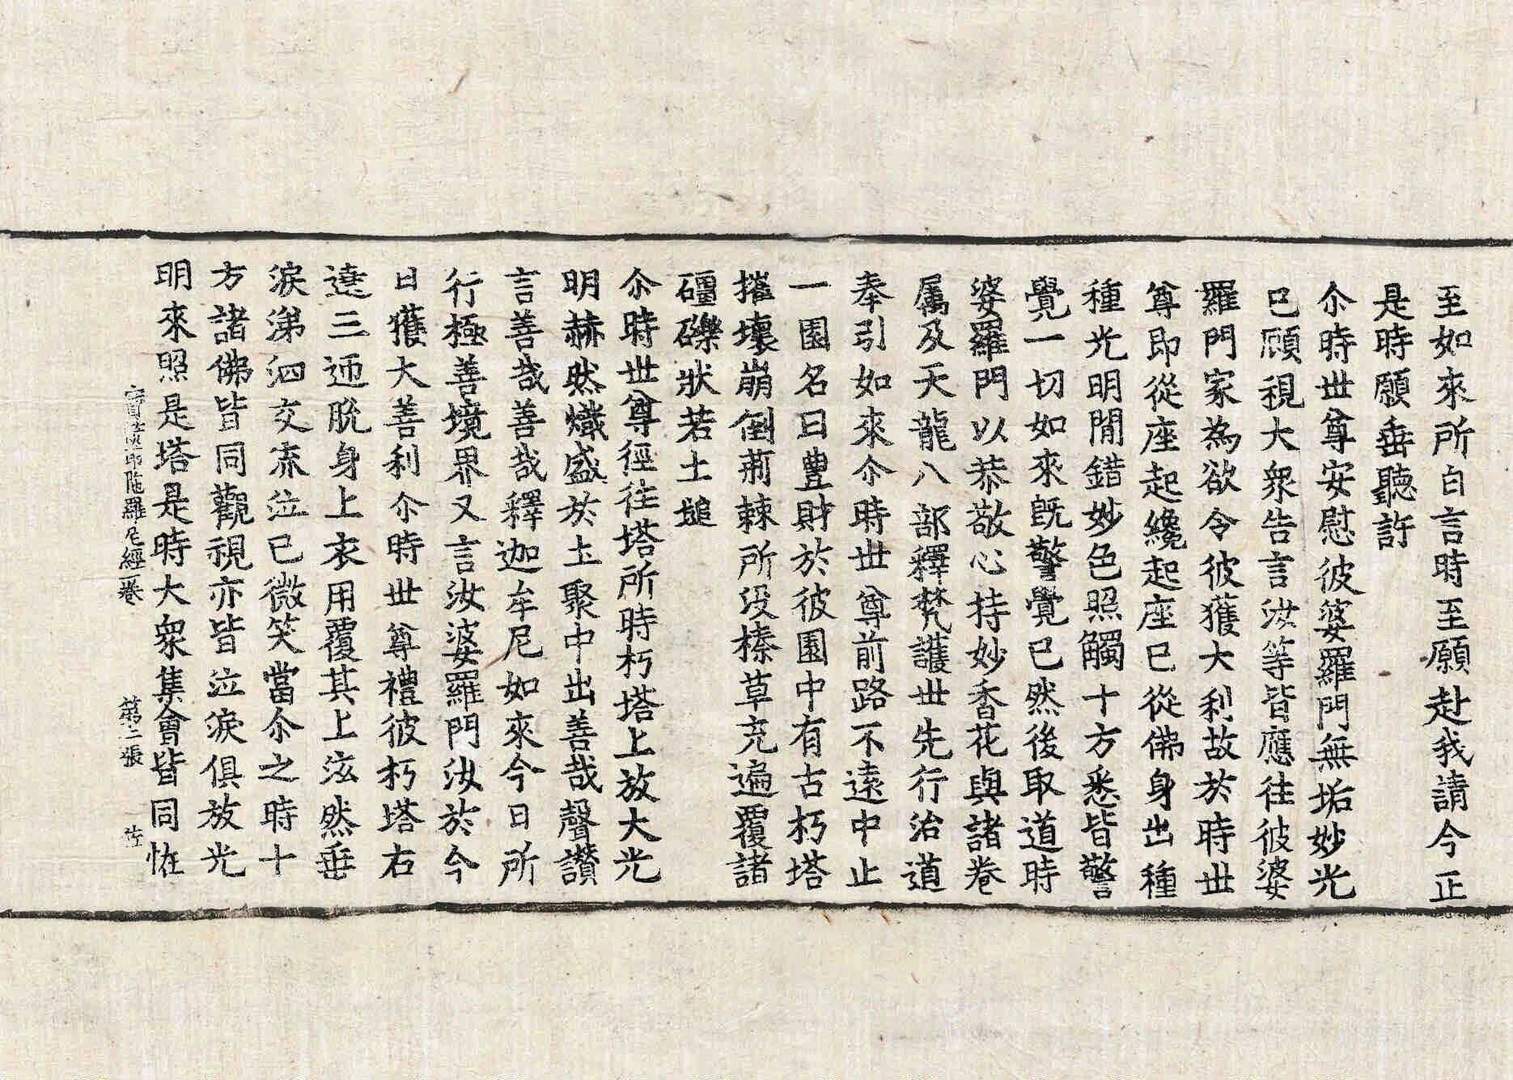 至如來所白言時至願赴我請今正
是時願垂聽許
尒時世尊安慰彼婆羅門無垢妙光
已顧視大衆告言汝等皆應往彼婆
羅門家為欲令彼獲大利故於時世
尊即從座起纔起座已從佛身出種
種光明閒錯妙色照觸十方悉皆警
覺一切如來旣警覺已然後取道時
婆羅門以恭敬心持妙香花與諸眷
屬及天龍八部釋梵護世先行治道
奉引如來尒時世尊前路不遠中止
一園名曰豊財於彼園中有古朽塔
摧壞崩倒荊棘所没榛草充遍覆諸
礓礫狀若土塠
尒時世尊徑往塔所時朽塔上放大光
明赫然熾盛於土聚中出善哉聲讃
言善哉善哉釋迦牟尼如來今日所
行極善境界又言汝婆羅門汝於今
日獲大善利尒時世尊禮彼朽塔右
遶三迊脫身上衣用覆其上泫然垂
淚涕泗交流泣已微笑當尒之時十
方諸佛皆同觀視亦皆泣淚俱放光
明來照是塔是時大衆集會皆同恠
寶篋印陁羅尼經卷 第二張 㤰